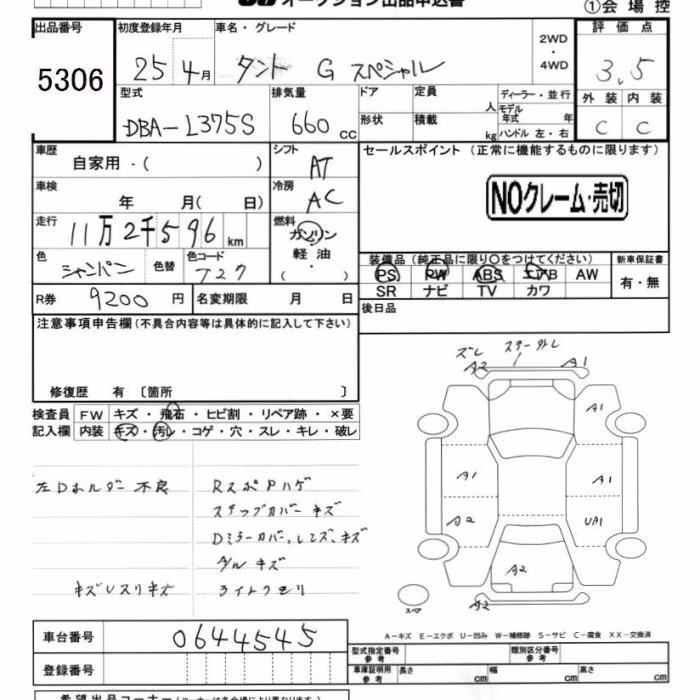 オークション出品申込書
①会場控
出品番号
5306
初度登録年月
25 4月
車名・グレード
タント G スペシャル
2WD
・
4WD
評価点
3.5
型式
DBA-L375S
排気量
660 cc
ドア
定員
人
形状
積載
kg
ディーラー・並行
モデル年式 年
ハンドル 左・右
外装 内装
C C
車歴
自家用・( )
シフト
AT
セールスポイント (正常に機能するものに限ります)
NOクレーム・売切
車検
年 月( 日)
冷房
AC
走行
11万2千596km
燃料
ガソリン
軽油
( ・ )
色
シャンパン
色替
色コード
T27
装備品 (純正品に限り○をつけてください)
PS PW ABS エアB AW
SR ナビ TV カワ
新車保証書
有・無
R券 9200円
名変期限 月 日
後日品
注意事項申告欄(不具合内容等は具体的に記入して下さい)
修復歴 有 〔箇所 〕
検査員記入欄
FW キズ・飛石・ヒビ割・リペア跡・×要
内装 キズ・汚レ・コゲ・穴・スレ・キレ・破レ
左Dホルダー不良
キズUスリキズ
RスポPハゲ
ステップカバーキズ
Dミラーカバー、レズ、キズ
グルキズ
ライトクモリ
ズレ
A2
A1
A1
A1
A1
A2
UA1
A2
A2
スペア
A-キズ E-エクボ U-凹み W-補修跡 S-サビ C-腐食 XX-交換済
車台番号
0644545
登録番号
型式指定番号
参考
類別区分番号
参考
車庫証明用
参考
長さ cm
幅 cm
高さ cm
希望出品コーナー